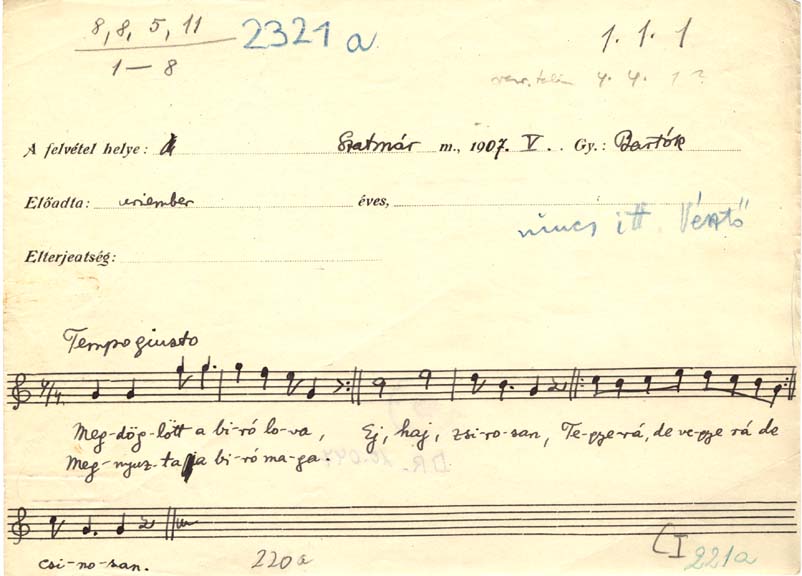 8, 8, 5, 11
1 — 8
2321 a
1. 1. 1
4. 4. 1?
A felvétel helye: Szatmár m., 1907. V. . Gy.: Bartók
Előadta: uriember éves,
nincs itt Vésztő
Elterjeatség:
Tempo giusto
4/4.
Meg-dög-lött a bi-ró lo-va, Ej, haj, zsi-ro-san, Te-gye-rá, de ve-gye rá de
Meg-nyuz-ta a bi-ró ma-ga.
csi-no-san.
220a
I 221a